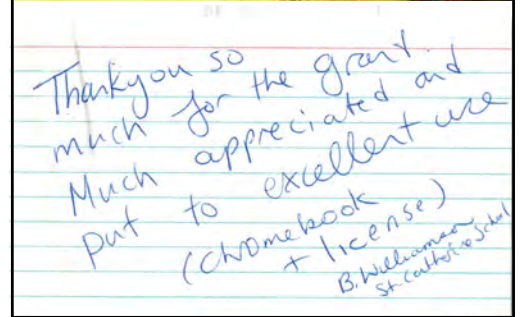 Thankyou so
much for the grant.
Much appreciated and
put to excellent use
(Chromebook
+ license)
B. Williamson
St. Catherine School